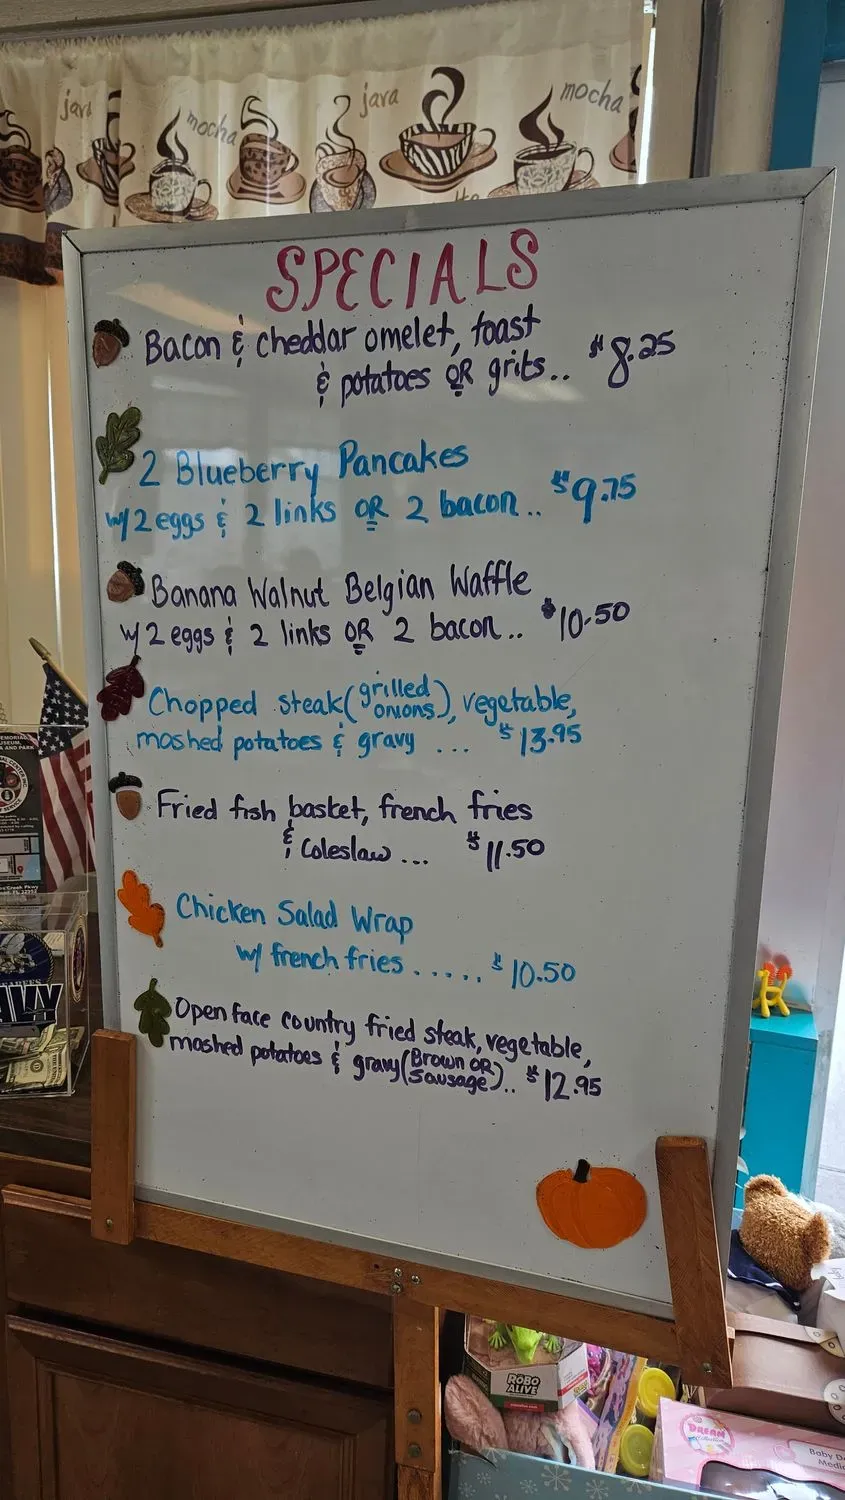 java
mocha
java
mocha
SPECIALS
Bacon & cheddar omelet, toast
& potatoes OR grits.. $8.25
2 Blueberry Pancakes
w/ 2 eggs & 2 links OR 2 bacon.. $9.75
Banana Walnut Belgian Waffle
w/ 2 eggs & 2 links OR 2 bacon.. $10.50
Chopped steak (grilled onions), vegetable,
mashed potatoes & gravy ... $13.95
Fried fish basket, french fries
& Coleslaw ... $11.50
Chicken Salad Wrap
w/ french fries ..... $10.50
Open face country fried steak, vegetable,
mashed potatoes & gravy (Brown OR Sausage).. $12.95
AND PARK
ROBO
ALIVE
DREAM
Baby